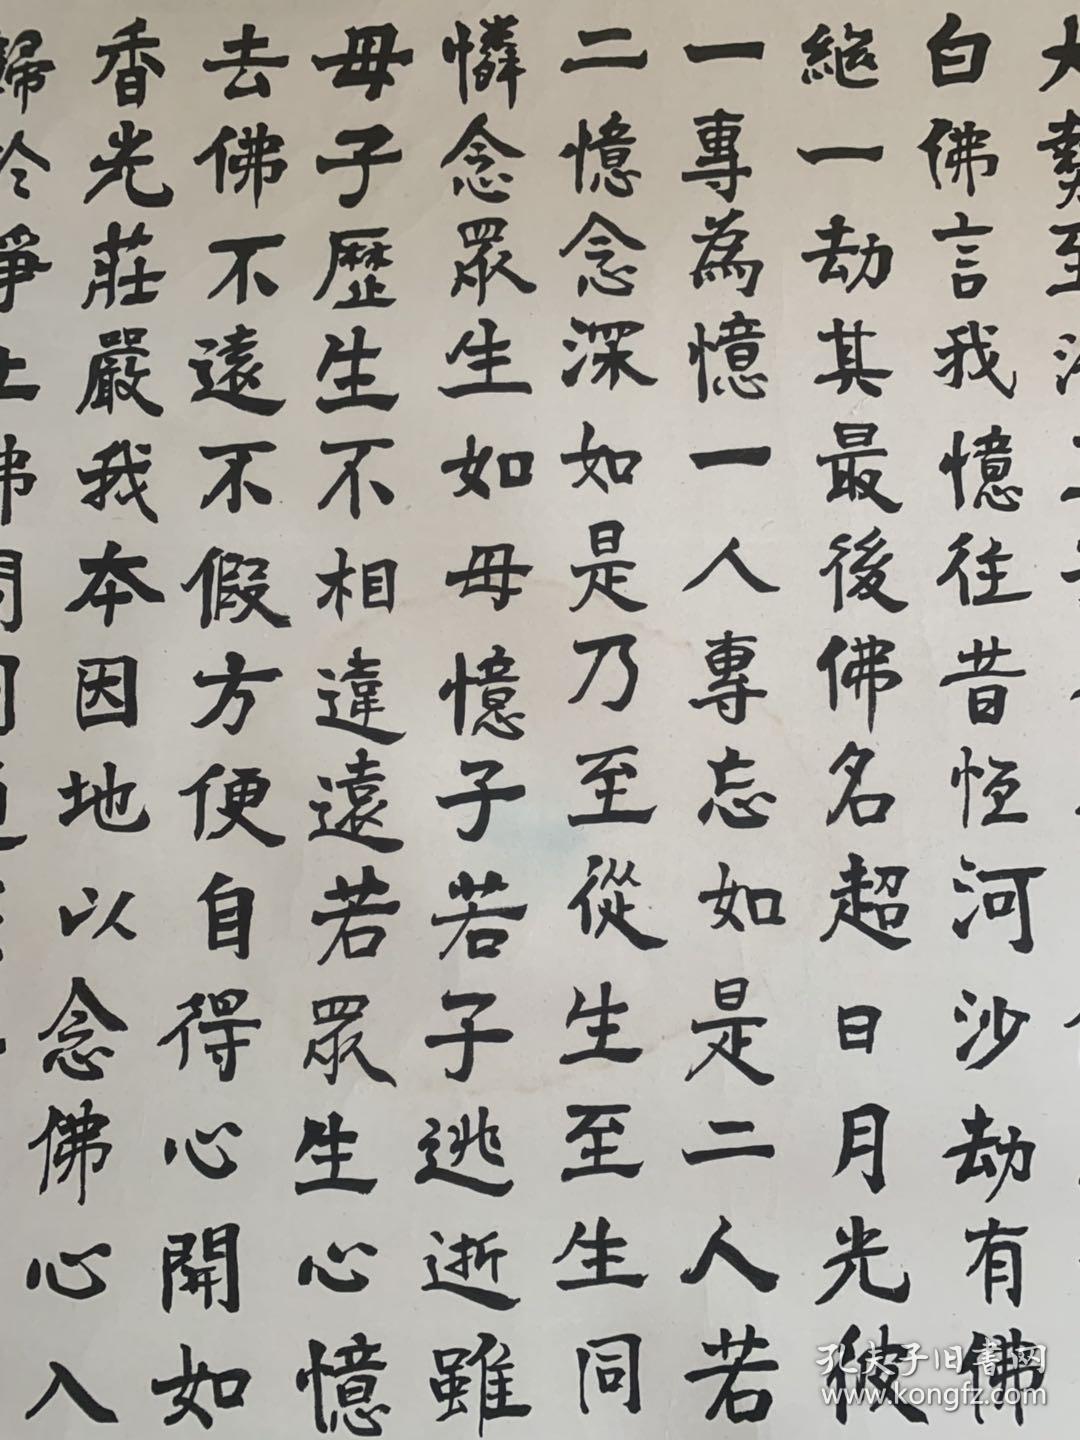 大勢至
白佛言我憶往昔恒河沙劫有佛
繼一劫其最後佛名超日月光彼
一專為憶一人專忘如是二人若
二憶念深如是乃至從生至生同
憐念眾生如母憶子若子逃逝雖
母子歷生不相違遠若眾生心憶
去佛不遠不假方便自得心開如
香光莊嚴我本因地以念佛心入
歸於淨土佛問
孔夫子旧書网
www.kongfz.com